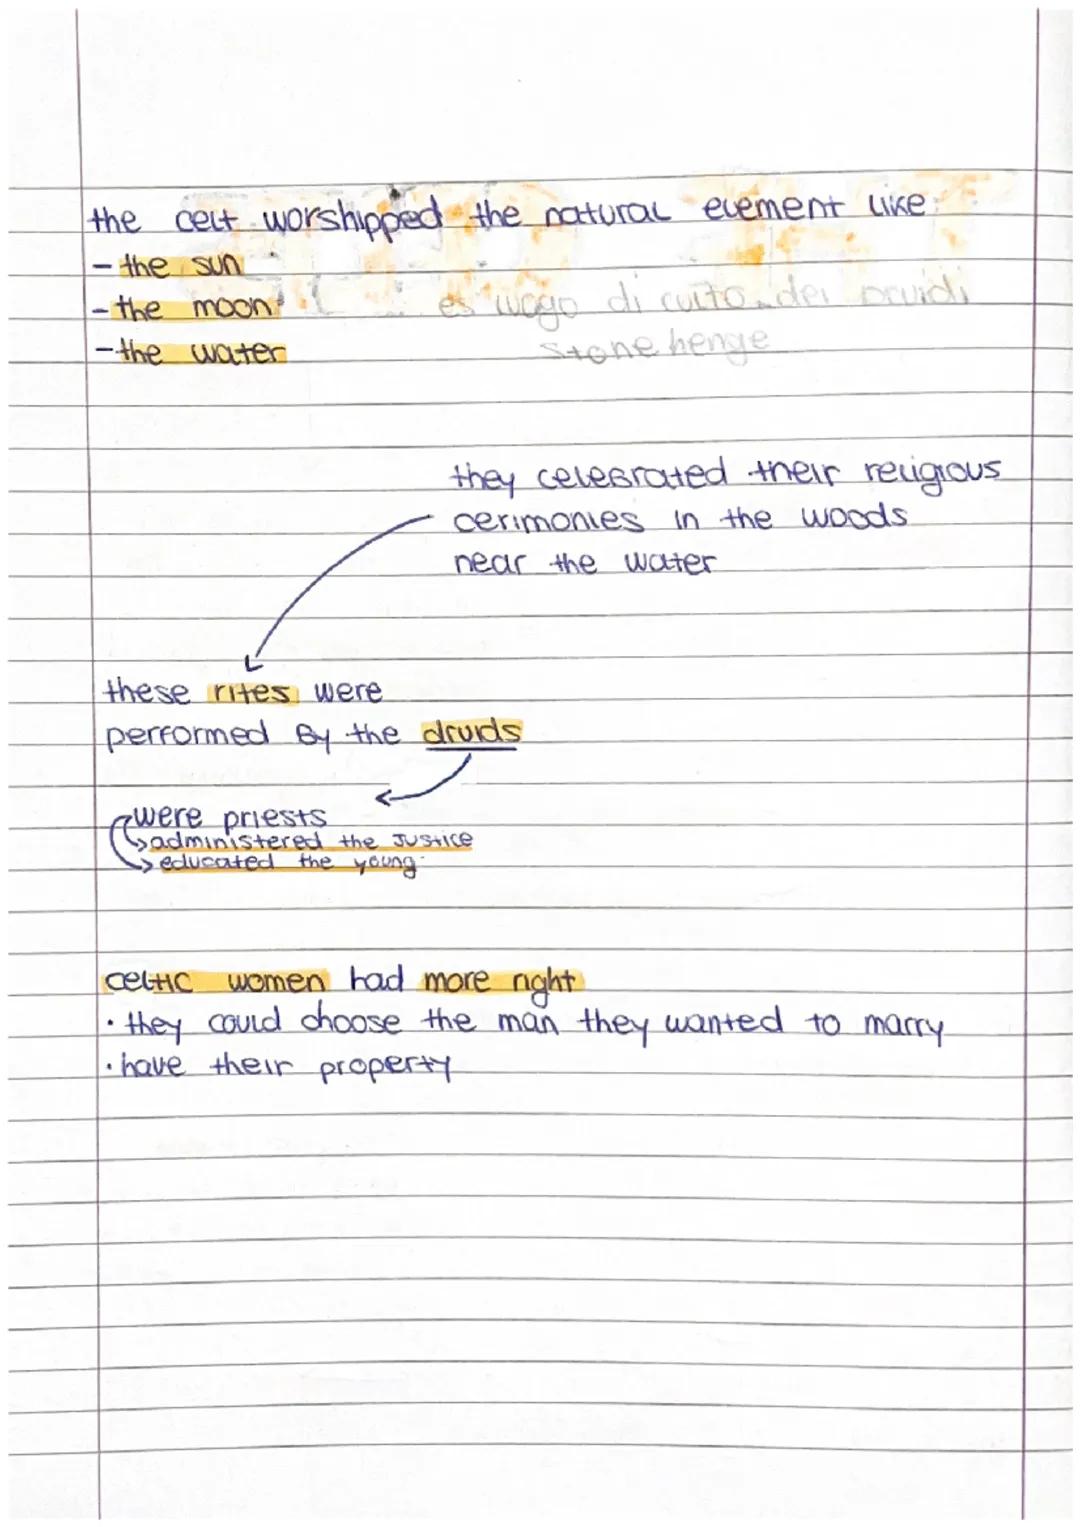 the celt worshipped the natural element like:
- the sun
- the moon
es luogo di culto dei druidi
- the water
Stonehenge
they celebrated their religious
cerimonies in the woods
near the water
these rites were
performed by the druids
were priests
administered the Justice
educated the young.
celtic women had more right
· they could choose the man they wanted to marry
· have their property